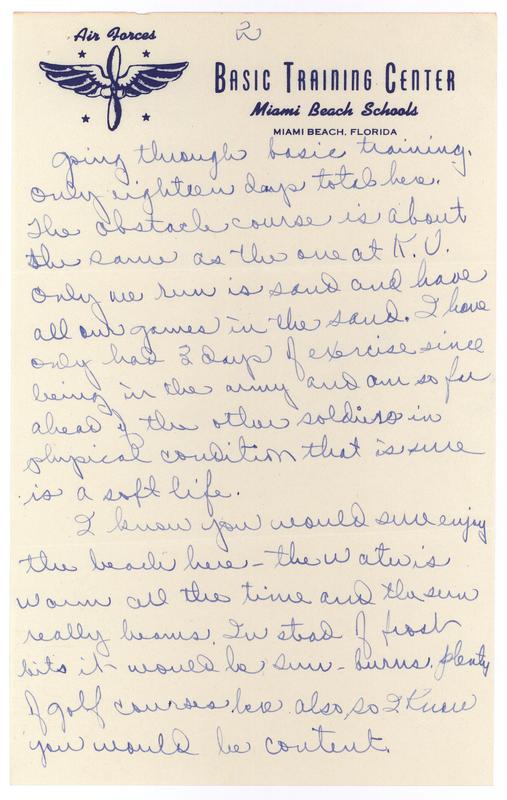 2
Air Forces
BASIC TRAINING CENTER
Miami Beach Schools
MIAMI BEACH, FLORIDA
going through basic training.
only eighteen days total here.
The obstacle course is about
the same as the one at K.U.
only we run is sand and have
all our games in the sand. I have
only had 3 days of exercise since
being in the army and am so far
ahead of the other soldiers in
physical condition that is sure
is a soft life.
I know you would sure enjoy
the beach here - the water is
warm all the time and the sun
really beams. In stead of frost
bits it would be sun-burns. plenty
of golf courses here also, so I know
you would be content.